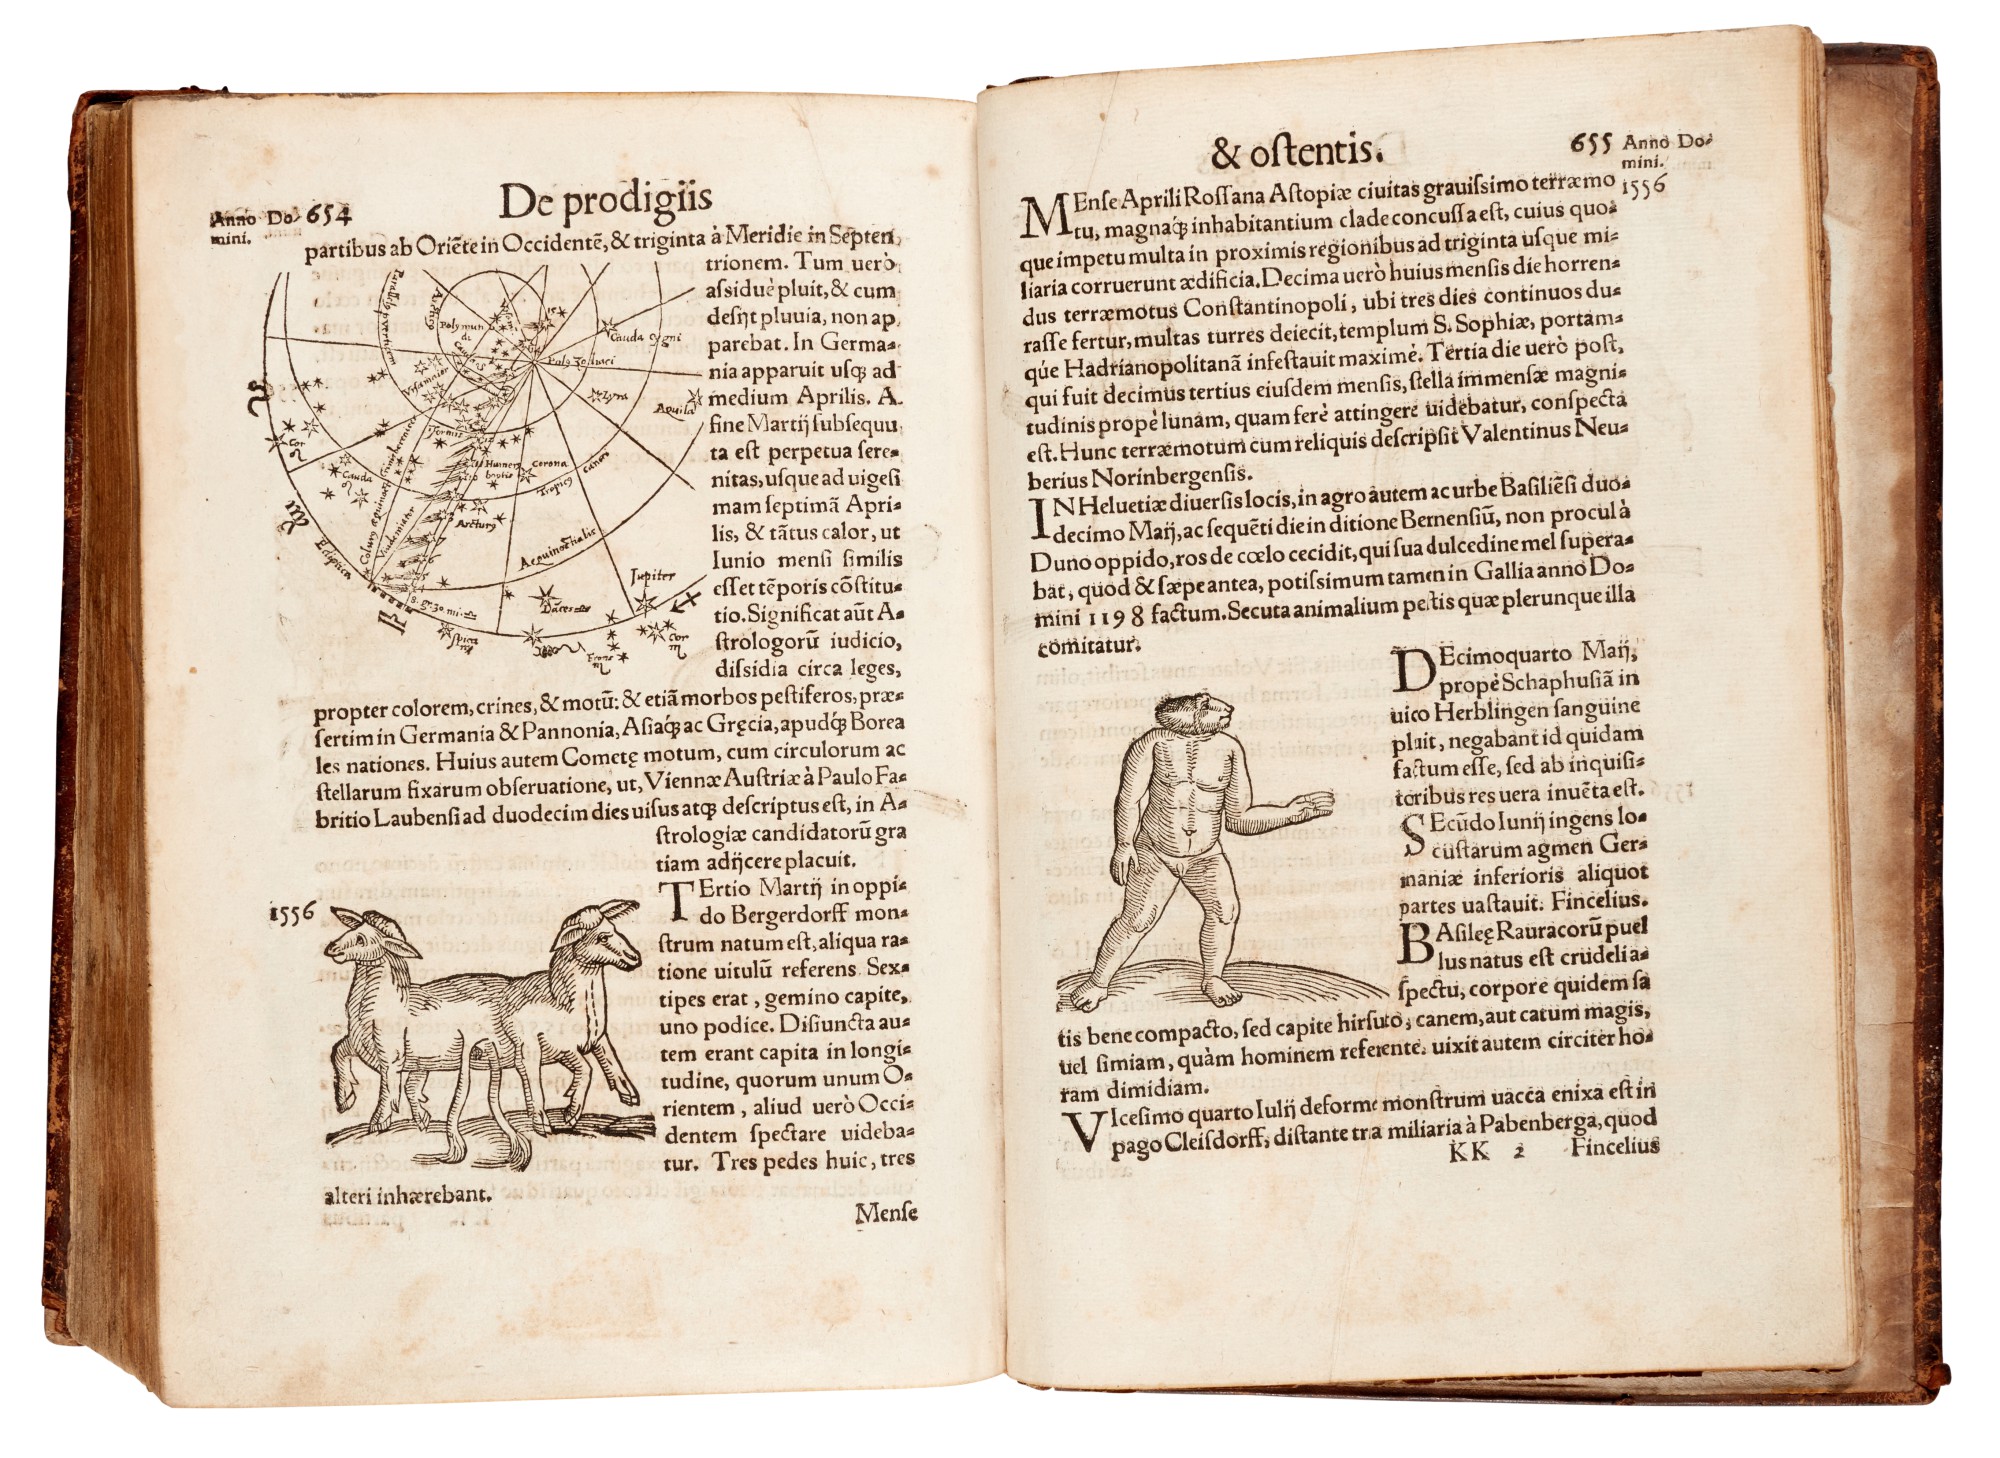 Anno Do-
mini.
654
De prodigijs
partibus ab Oriẽte in Occidentẽ, & triginta à Meridie in Septen
trionem. Tum uerò
assiduè pluit, & cum
desijt pluuia, non ap
parebat. In Germa-
nia apparuit usq́; ad
medium Aprilis. A
fine Martij subsequu
ta est perpetua sere-
nitas, usque ad uigesi
mam septimã Apri-
lis, & tãtus calor, ut
Iunio mensi similis
esset tẽporis cõstitu-
tio. Significat aũt A-
strologorũ iudicio,
dissidia circa leges,
propter colorem, crines, & motũ: & etiã morbos pestiferos, præ-
sertim in Germania & Pannonia, Asiaq́; ac Gręcia, apudq́; Borea
les nationes. Huius autem Cometę motum, cum circulorum ac
stellarum fixarum obseruatione, ut, Viennæ Austriæ à Paulo Fa-
britio Laubensi ad duodecim dies uisus atq́; descriptus est, in A-
strologiæ candidatorũ gra
tiam adijcere placuit.
1556
TErtio Martij in oppi-
do Bergerdorff mon-
strum natum est, aliqua ra-
tione uitulũ referens. Sex-
tipes erat, gemino capite,
uno podice. Disiuncta au-
tem erant capita in longi-
tudine, quorum unum O-
rientem, aliud uerò Occi-
dentem spectare uideba-
tur. Tres pedes huic, tres
alteri inhærebant.
Mense
Polus Zodiaci
Cauda cygni
Lyra
Aquila
Corona
Tropicus Cancri
Arcturus
Aequinoctialis
Ecliptica
Jupiter
Spica
Cauda
Cor
& ostentis.
655
Anno Do-
mini.
1556
MEnse Aprili Rossana Astopiæ ciuitas grauissimo terræmo
tu, magnaq́; inhabitantium clade concussa est, cuius quo-
que impetu multa in proximis regionibus ad triginta usque mi-
liaria corruerunt ædificia. Decima uerò huius mensis die horren-
dus terræmotus Constantinopoli, ubi tres dies continuos du-
rasse fertur, multas turres deiecit, templum S. Sophiæ, portam-
qúe Hadrianopolitanã infestauit maximè. Tertia die uerò post,
qui fuit decimus tertius eiusdem mensis, stella immensæ magni-
tudinis propè lunam, quam ferè attingere uidebatur, conspecta
est. Hunc terræmotum cum reliquis descripsit Valentinus Neu-
berius Norinbergensis.
IN Heluetiæ diuersis locis, in agro autem ac urbe Basiliẽsi duo-
decimo Maij, ac sequẽti die in ditione Bernensiũ, non procul à
Duno oppido, ros de cœlo cecidit, qui sua dulcedine mel supera-
bat, quod & sæpe antea, potissimum tamen in Gallia anno Do-
mini 1198 factum. Secuta animalium pestis quæ plerunque illa
comitatur.
DEcimoquarto Maij,
propè Schaphusiã in
uico Herblingen sanguine
pluit, negabant id quidam
factum esse, sed ab inquisi-
toribus res uera inuẽta est.
SEcũdo Iunij ingens lo-
custarum agmen Ger-
maniæ inferioris aliquot
partes uastauit. Fincelius.
BAsileę Rauracorũ puel
lus natus est crudeli a-
spectu, corpore quidem sa
tis bene compacto, sed capite hirsuto, canem, aut catum magis,
uel simiam, quàm hominem referente. uixit autem circiter ho-
ram dimidiam.
VIcesimo quarto Iulij deforme monstrum uacca enixa est in
pago Cleisdorff, distante tria miliaria à Pabenberga, quod
KK 2
Fincelius